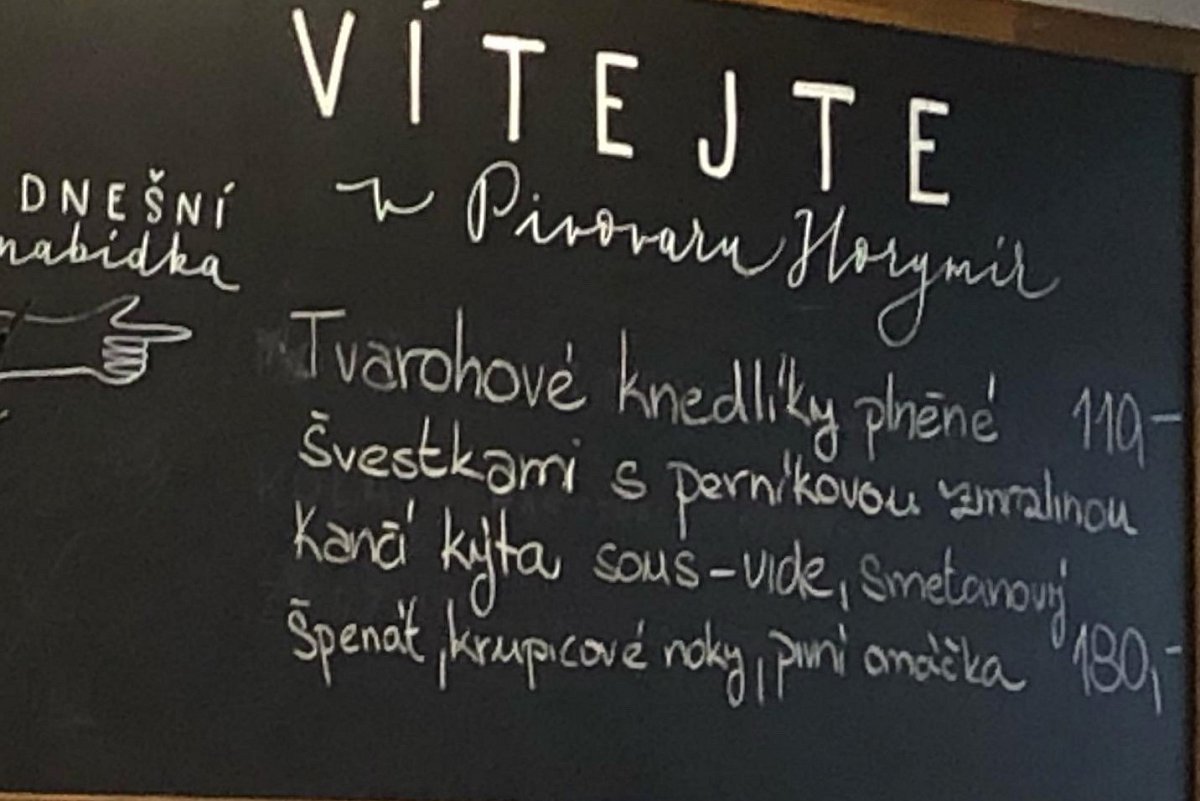 VÍTEJTE
v Pivovaru Horymír
DNEŠNÍ
nabídka
Tvarohové knedlíky plněné 110,-
švestkami s perníkovou zmrzlinou
Kančí kýta sous-vide, smetanový
špenát, krupicové noky, pivní omáčka 180,-